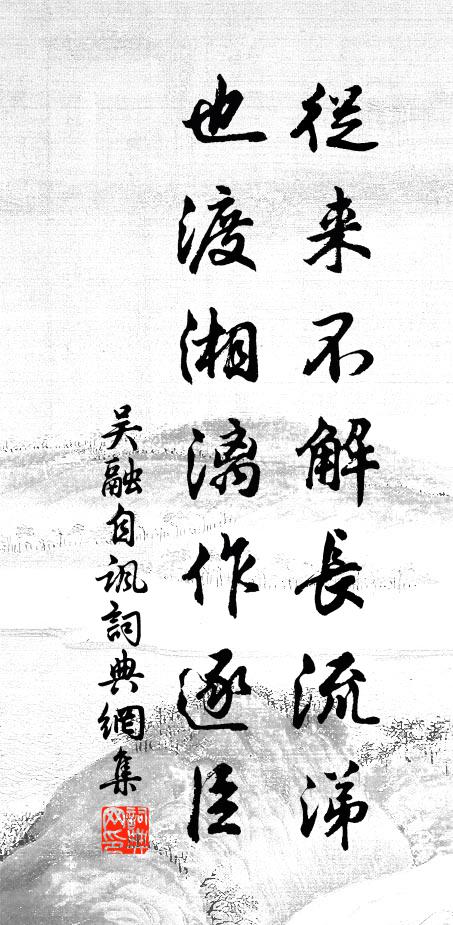 從来不解長流涕
也渡湘漓作逐臣
吴融自諷詞典網集